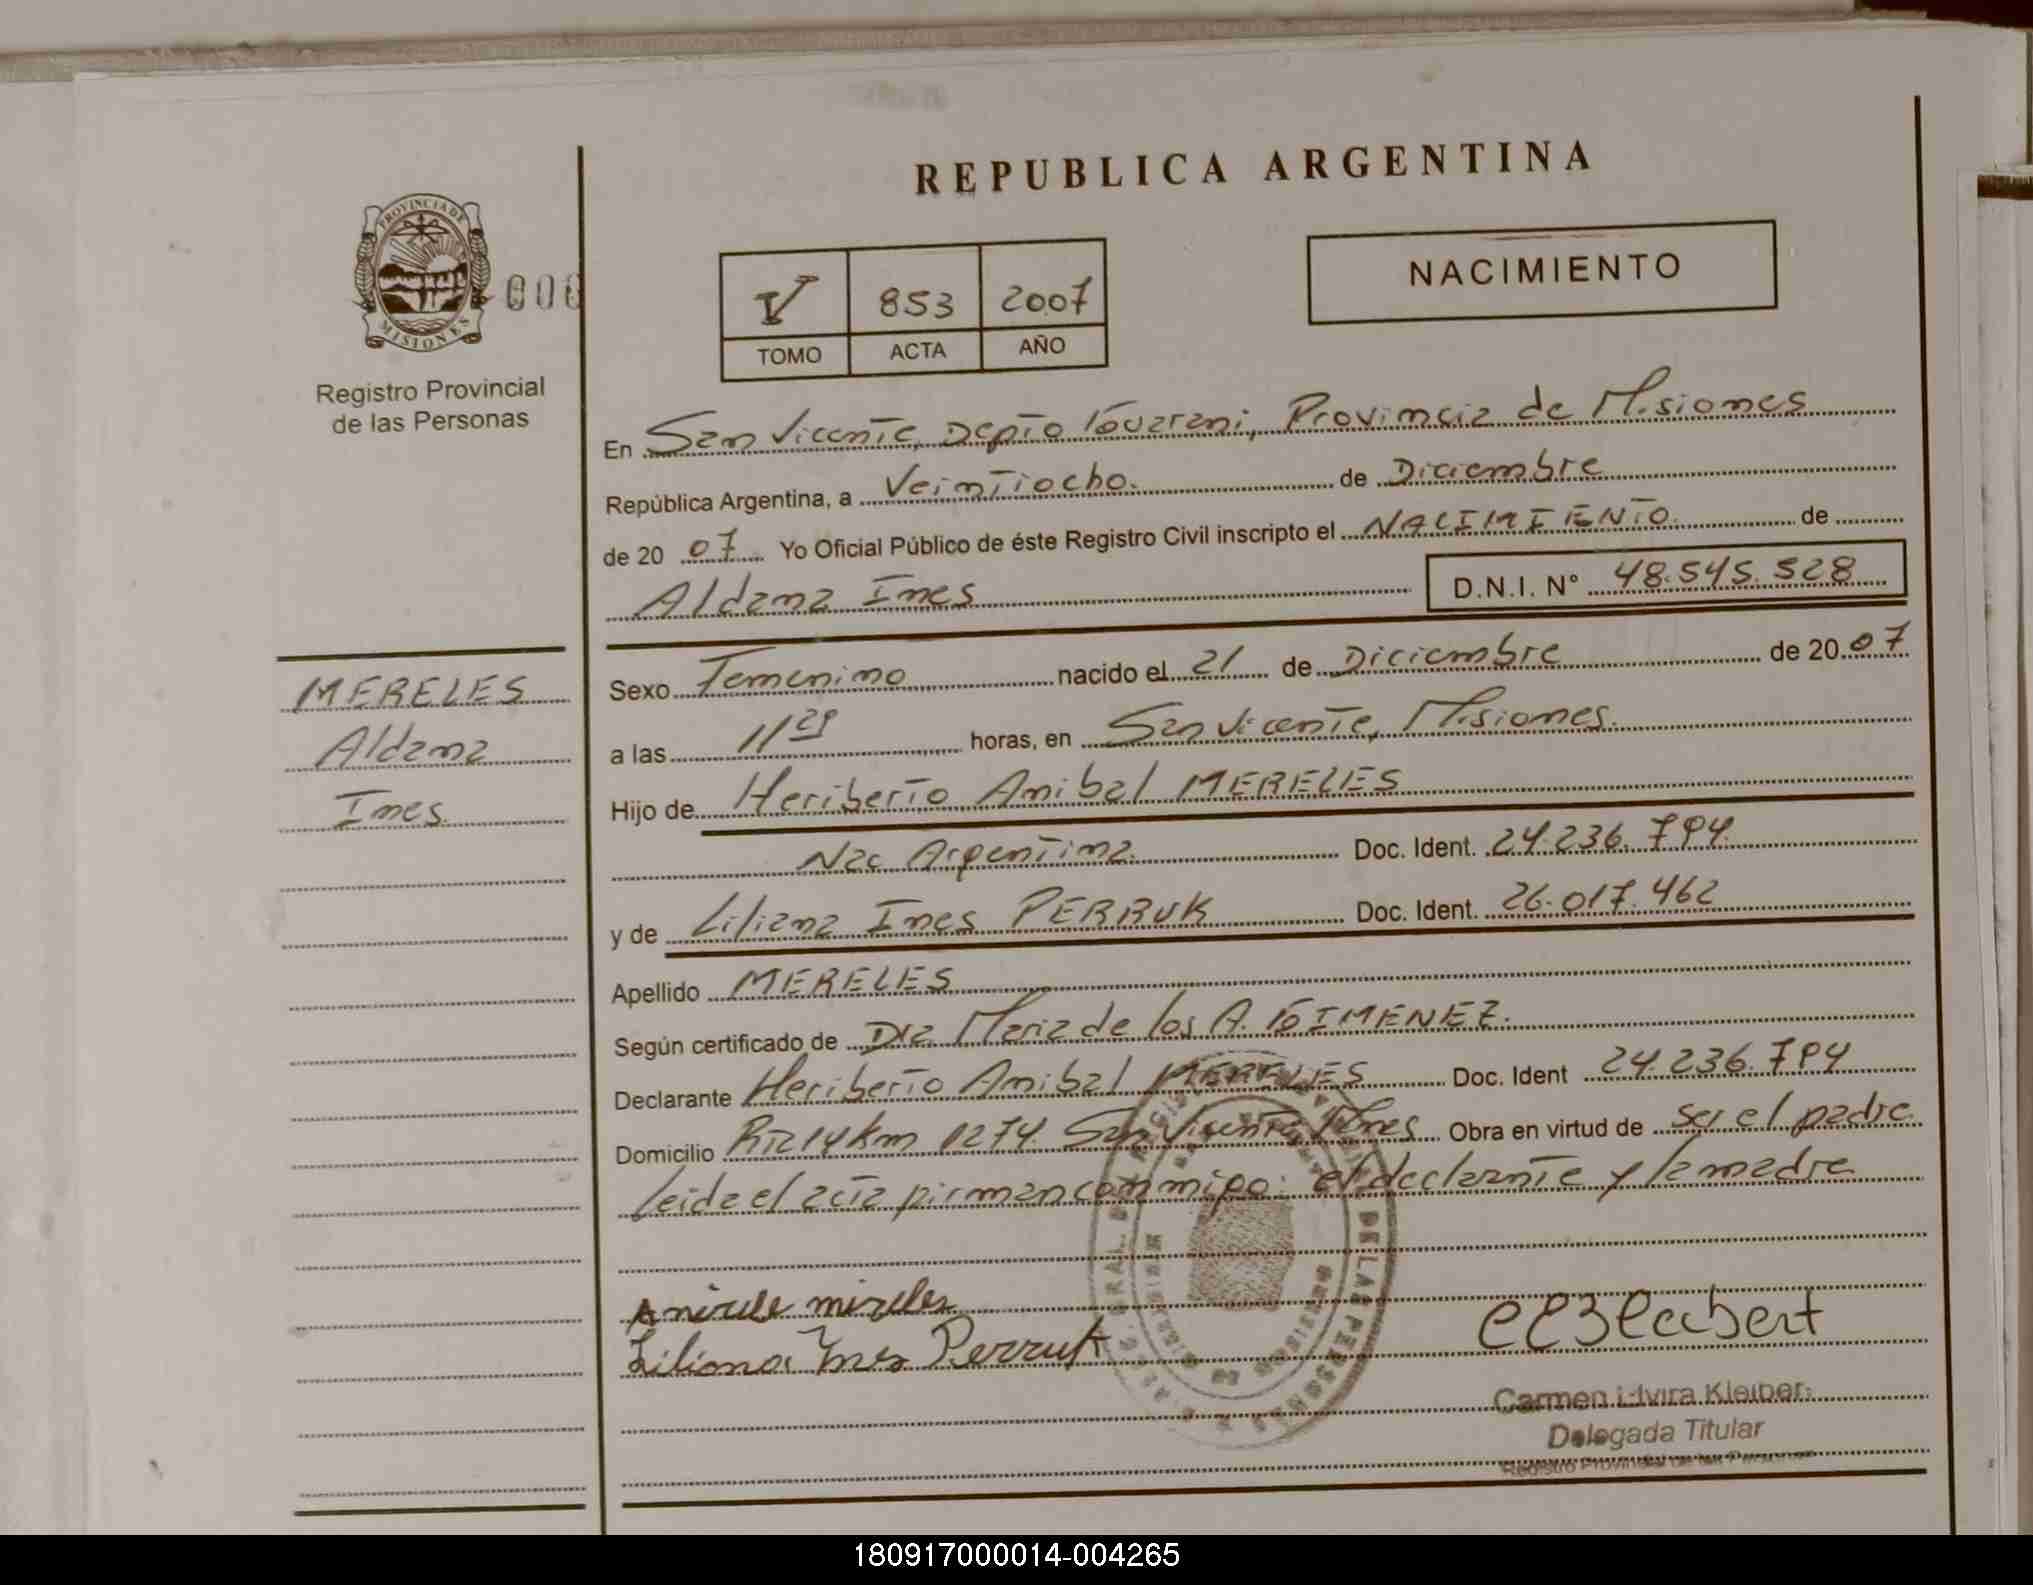 REPUBLICA ARGENTINA
PROVINCIA DE
MISIONES
000
Registro Provincial
de las Personas
V 853 2007
TOMO ACTA AÑO
NACIMIENTO
En San Vicente, Depto Guarani, Provincia de Misiones
República Argentina, a Veintiocho. de Diciembre
de 20 07 Yo Oficial Público de éste Registro Civil inscripto el NACIMIENTO. de
Aldana Ines D.N.I. Nº 48.545.528
MERELES
Aldana
Ines.
Sexo Femenino nacido el 21 de Diciembre de 20 07
a las 11 29 horas, en San Vicente, Misiones.
Hijo de Heriberto Anibal MERELES
Nac Argentina. Doc. Ident. 24.236.794
y de Liliana Ines PERRUK Doc. Ident. 26.017.462
Apellido MERELES
Según certificado de Dra Maria de los A. GIMENEZ.
Declarante Heriberto Anibal MERELES Doc. Ident 24.236.794
Domicilio Rta 14 Km 1274. San Vicente Mnes Obra en virtud de ser el padre.
Leida el acta firman conmigo: el declarante y la madre
mireles
Liliana Ines Perruk
DE LAS PERSONAS
Carmen Elvira Kleiber
Delegada Titular
Registro Provincial de las Personas
180917000014-004265